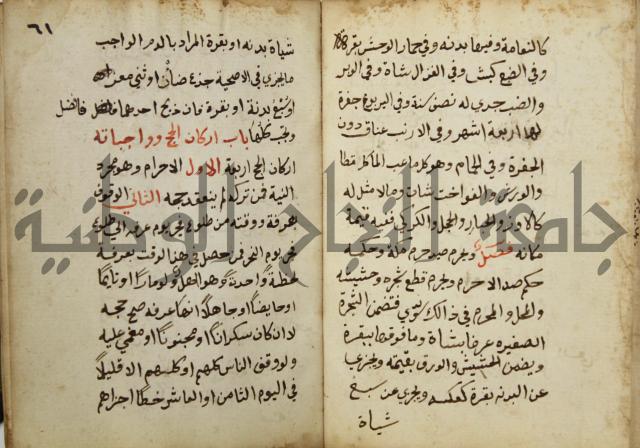 كالنعامة وفيها بدنه وفي حمار الوحش بقرة
وفي الضبع كبش وفي الغزال شاة وفي الوبر
والضب جدي له نصف سنة وفي اليربوع جفرة
لها اربعة اشهر وفي الارنب عناق دون
الجفرة وفي الحمام وهو كلما عب الماء كالقطا
والورش والفواخت شاة ومالا مثل له
كالاوز والحبار والحجل والكركي ففيه قيمة
مكانه فصل ويحرم صيد حرم مكة وحكمه
حكم صيد الاحرام ويحرم قطع شجره وحشيشه
والمحل والمحرم في ذالك سوى فتضمن الشجرة
الصغيره عرفا بشاة وما فوقها ببقرة
ويضمن الحشيش والورق بقيمته ويجزي
عن البدنه بقرة كعكسه ويجزي عن سبع
شياة
٦١
شياة بدنه او بقرة المراد بالدم الواجب
ما يجزي في الاضحية جذع ضان او ثني معز
او سبع بدنة او بقرة فان ذبح احدهما فافضل
وتجب كلها باب اركان الحج وواجباته
اركان الحج اربعة الاول الاحرام وهو مجرد
النية فمن تركه لم ينعقد حجه الثاني الوقوف
بعرفة ووقته من طلوع فجر يوم عرفه الى طلوع
فجر يوم النحر فمن حصل في هذا الوقت بعرفة
لحظة واحدة وهو اهل ولو مارا او نايما
او حايضا او جاهلا انها عرفه صح حجه
لا ان كان سكرانا او مجنونا او مغمى عليه
ولو وقف الناس كلهم او كلهم الا قليلا
في اليوم الثامن او العاشر خطا اجزاهم
جامعة النجاح الوطنية